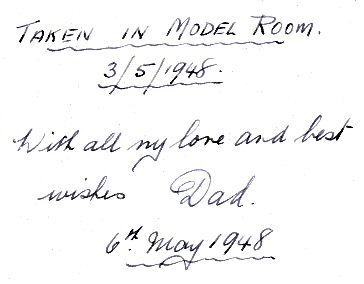 TAKEN IN MODEL ROOM.
3/5/1948.
With all my love and best
wishes Dad.
6th May 1948